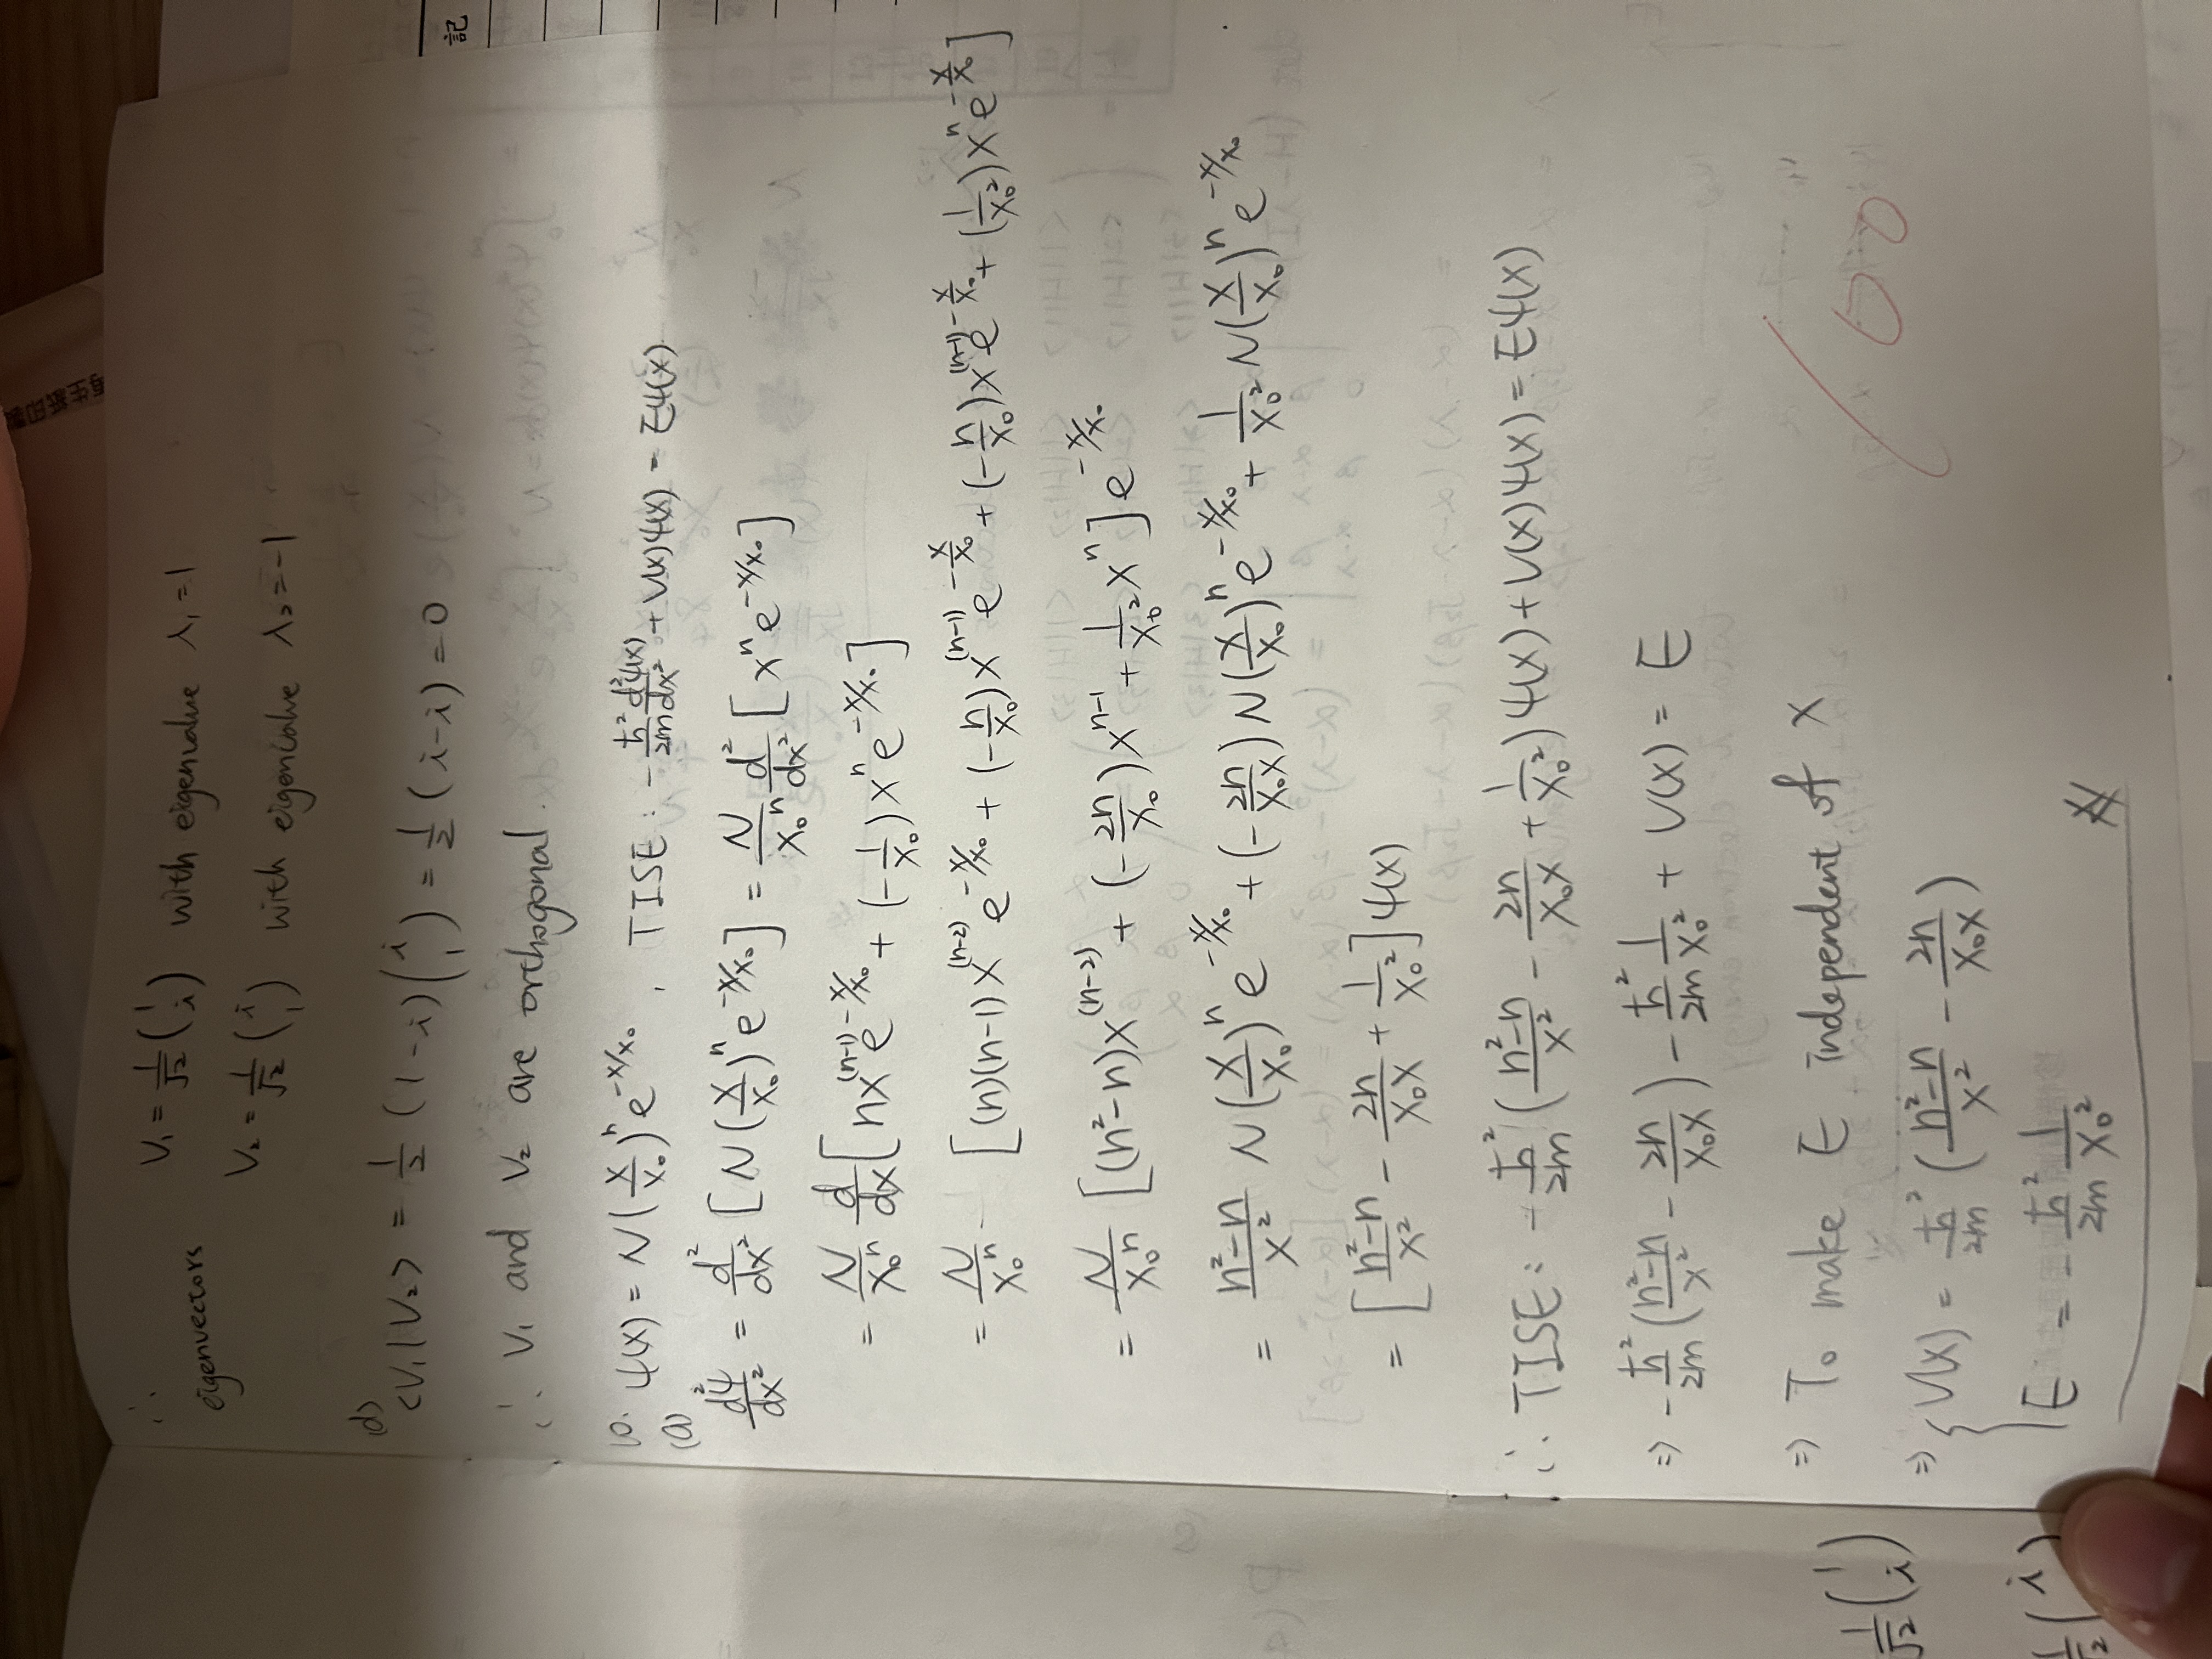 ∴ eigenvectors V₁ = 1/√2 (1 i) with eigenvalue λ₁ = 1
V₂ = 1/√2 (i 1) with eigenvalue λ₂ = -1
(d)
<V₁|V₂> = 1/2 (1 -i)(i 1) = 1/2 (i-i) = 0
∴ V₁ and V₂ are orthogonal.
10. ψ(x) = N(x/x₀)ⁿ e^(-x/x₀) , TISE: -ħ²/2m d²ψ(x)/dx² + V(x)ψ(x) = Eψ(x)
(a)
d²ψ/dx² = d²/dx² [N(x/x₀)ⁿ e^(-x/x₀)] = N/x₀ⁿ d²/dx² [xⁿ e^(-x/x₀)]
= N/x₀ⁿ d/dx [nx^(n-1) e^(-x/x₀) + (-1/x₀)xⁿ e^(-x/x₀)]
= N/x₀ⁿ [(n)(n-1)x^(n-2) e^(-x/x₀) + (-n/x₀)x^(n-1) e^(-x/x₀) + (-n/x₀)x^(n-1) e^(-x/x₀) + (1/x₀²)xⁿ e^(-x/x₀)]
= N/x₀ⁿ [(n²-n)x^(n-2) + (-2n/x₀)x^(n-1) + 1/x₀² xⁿ] e^(-x/x₀)
= (n²-n)/x² N(x/x₀)ⁿ e^(-x/x₀) + (-2n/x₀x) N(x/x₀)ⁿ e^(-x/x₀) + 1/x₀² N(x/x₀)ⁿ e^(-x/x₀)
= [(n²-n)/x² - 2n/x₀x + 1/x₀²] ψ(x)
∴ TISE: -ħ²/2m ((n²-n)/x² - 2n/x₀x + 1/x₀²) ψ(x) + V(x)ψ(x) = Eψ(x)
⇒ -ħ²/2m ((n²-n)/x² - 2n/x₀x) - ħ²/2m 1/x₀² + V(x) = E
⇒ To make E independent of x
100
⇒ { V(x) = ħ²/2m ((n²-n)/x² - 2n/x₀x)
E = -ħ²/2m 1/x₀²
1/√2 (1 i)
1/√2 (i
記